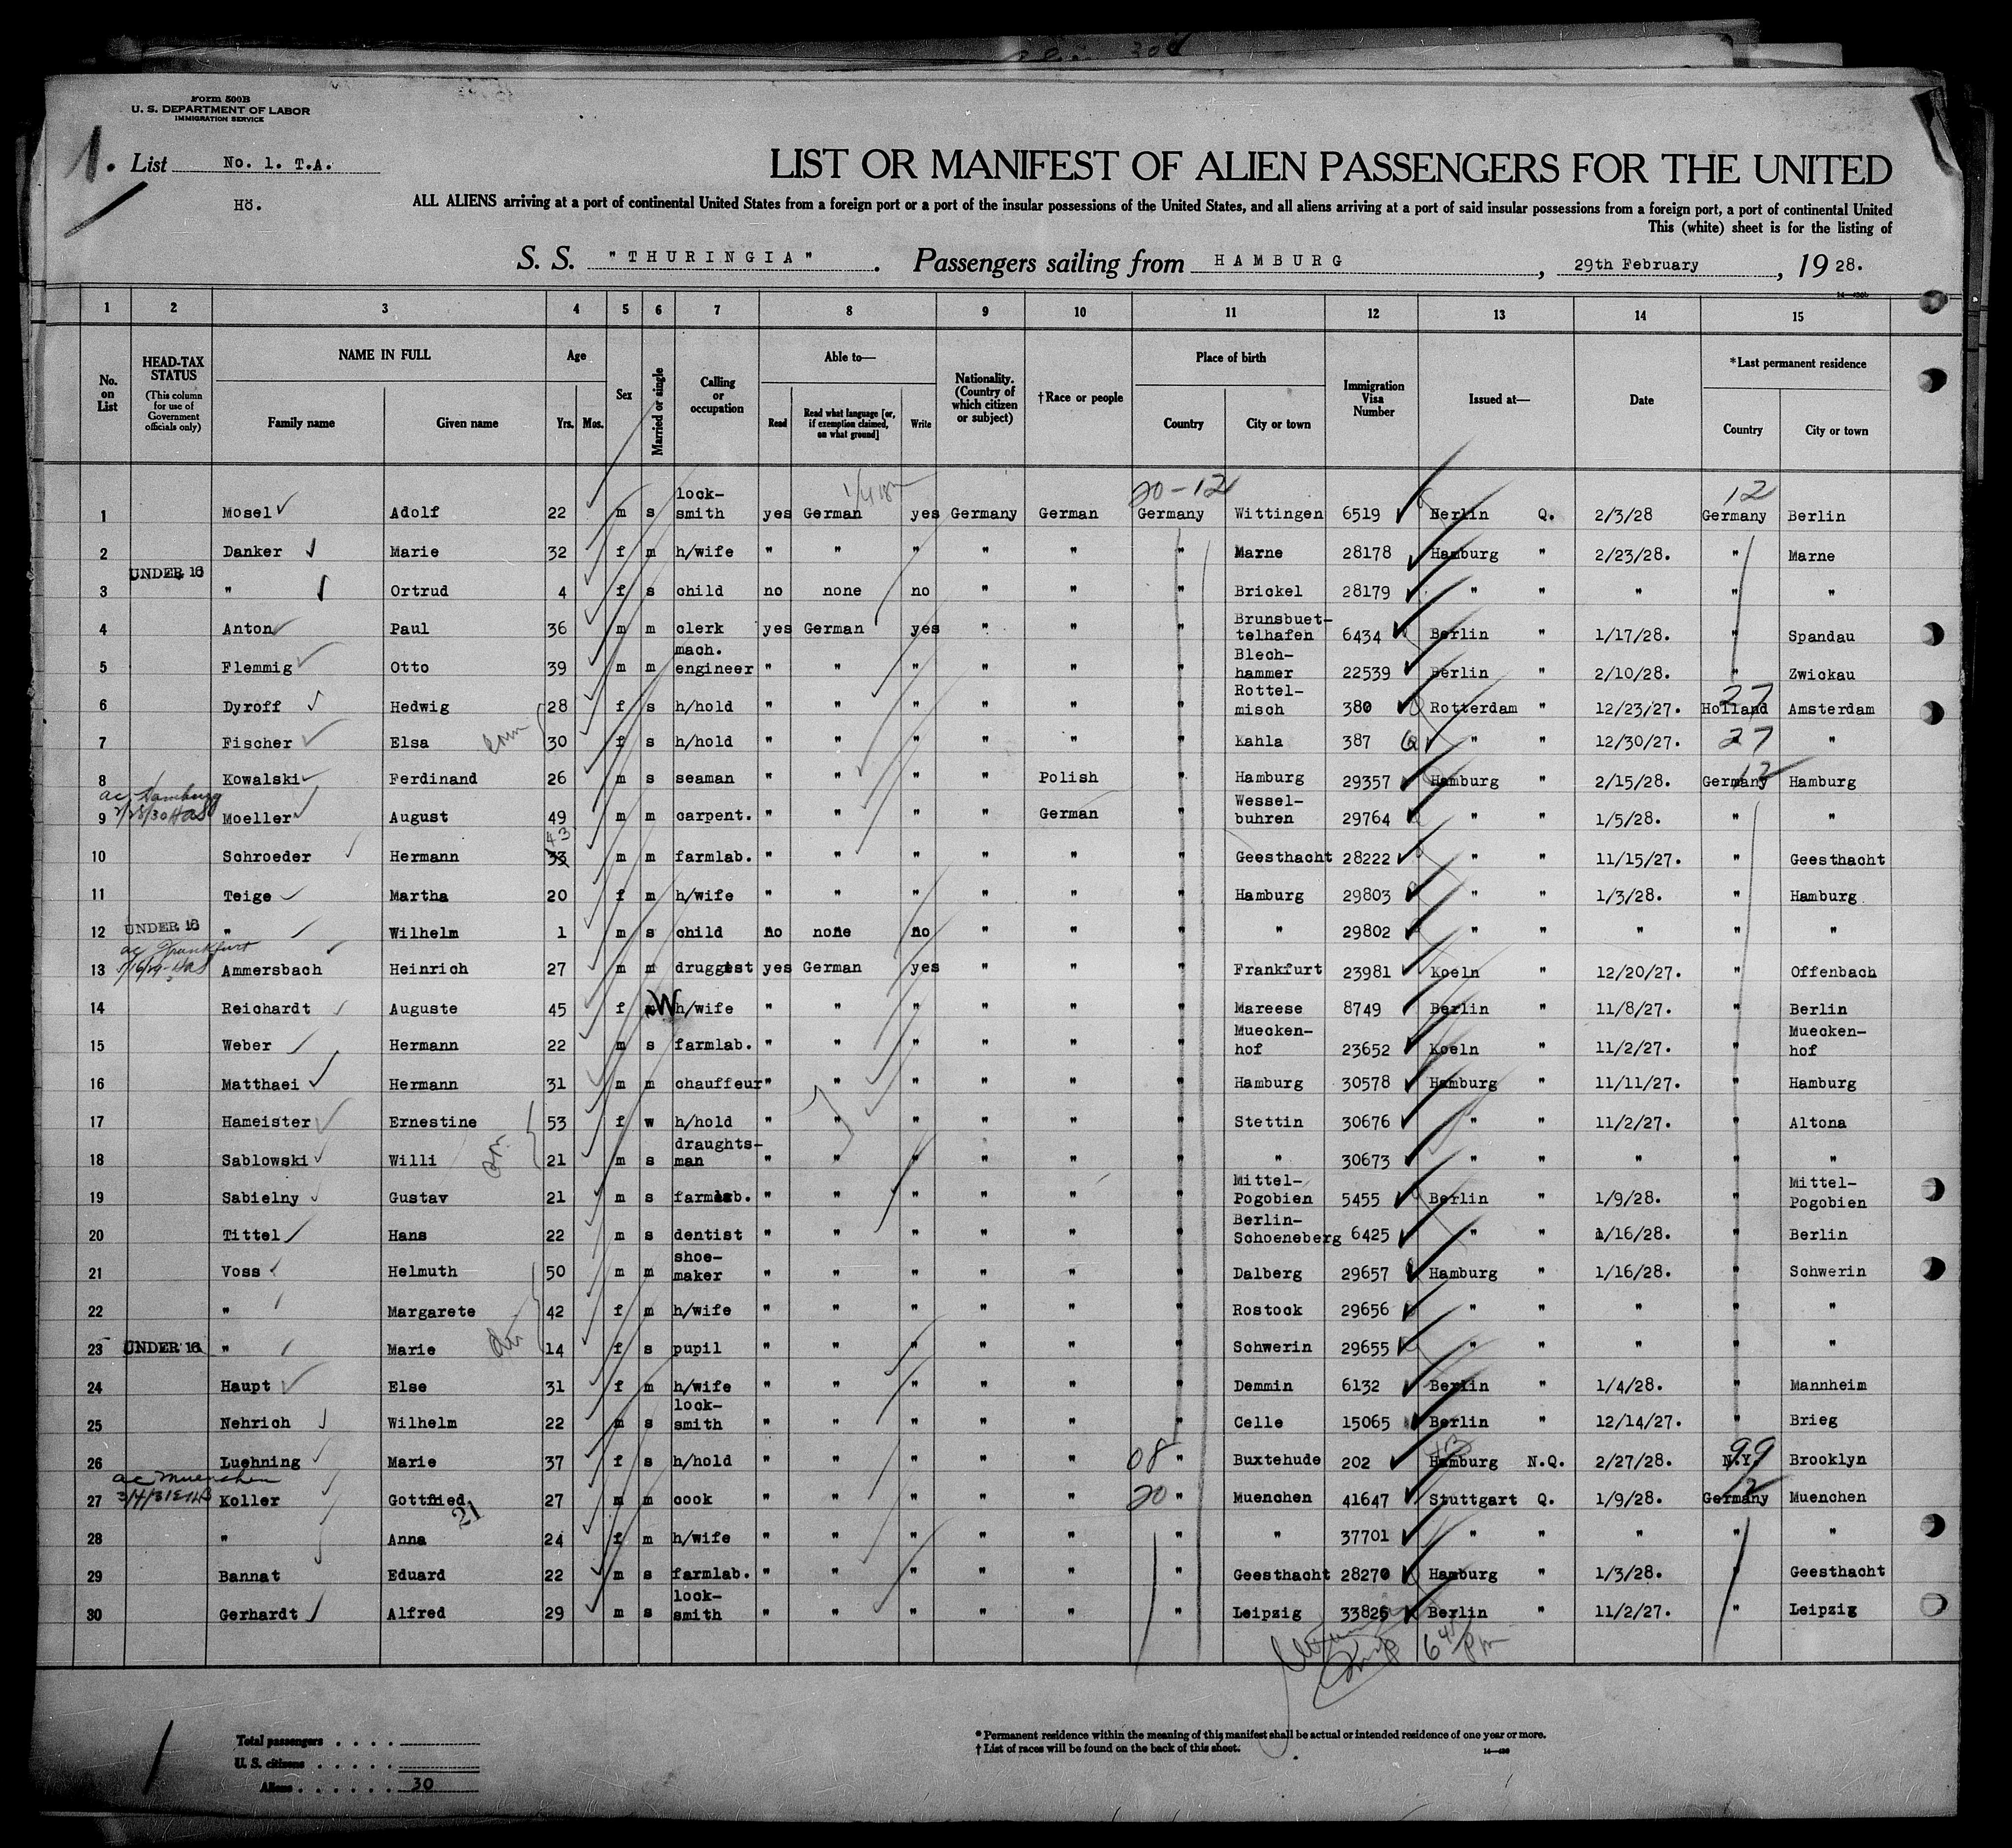 Form 500B
U. S. DEPARTMENT OF LABOR
IMMIGRATION SERVICE
1. List No. 1. T.A.
Hö.
LIST OR MANIFEST OF ALIEN PASSENGERS FOR THE UNITED
ALL ALIENS arriving at a port of continental United States from a foreign port or a port of the insular possessions of the United States, and all aliens arriving at a port of said insular possessions from a foreign port, a port of continental United
This (white) sheet is for the listing of
S. S. "THURINGIA". Passengers sailing from HAMBURG, 29th February, 1928.
1 2 3 4 5 6 7 8 9 10 11 12 13 14 15
No. on List
HEAD-TAX STATUS (This column for use of Government officials only)
NAME IN FULL Family name Given name
Age Yrs. Mos.
Sex
Married or single
Calling or occupation
Able to— Read Read what language [or, if exemption claimed, on what ground] Write
Nationality. (Country of which citizen or subject)
†Race or people
Place of birth Country City or town
Immigration Visa Number
Issued at—
Date
*Last permanent residence Country City or town
20-12 12
1 Mosel Adolf 22 m s lock-smith yes German yes Germany German Germany Wittingen 6519 Berlin Q. 2/3/28 Germany Berlin
2 Danker Marie 32 f m h/wife " " " " " " Marne 28178 Hamburg " 2/23/28. " Marne
UNDER 16
3 " Ortrud 4 f s child no none no " " " Brickel 28179 " " " " "
4 Anton Paul 36 m m clerk yes German yes " " " Brunsbuet-telhafen 6434 Berlin " 1/17/28. " Spandau
5 Flemmig Otto 39 m m mach. engineer " " " " " " Blech-hammer 22539 Berlin " 2/10/28. " Zwickau
6 Dyroff Hedwig 28 f s h/hold " " " " " " Rottel-misch 380 Rotterdam " 12/23/27. 27 Holland Amsterdam
7 Fischer Elsa 30 f s h/hold " " " " " " Kahla 387 " " 12/30/27. 27 " "
8 Kowalski Ferdinand 26 m s seaman " " " " Polish " Hamburg 29357 Hamburg " 2/15/28. Germany 12 Hamburg
ac Hamburg
9 Moeller August 49 m m carpent. " " " " German " Wessel-buhren 29764 " " 1/5/28. " "
43
10 Schroeder Hermann 33 m m farmlab. " " " " " " Geesthacht 28222 " " 11/15/27. " Geesthacht
11 Teige Martha 20 f m h/wife " " " " " " Hamburg 29803 " " 1/3/28. " Hamburg
12 UNDER 16 " Wilhelm 1 m s child no none no " " " " 29802 " " " " "
ac Frankfurt
13 Ammersbach Heinrich 27 m m druggest yes German yes " " " Frankfurt 23981 Koeln " 12/20/27. " Offenbach
14 Reichardt Auguste 45 f m W h/wife " " " " " " Mareese 8749 Berlin " 11/8/27. " Berlin
15 Weber Hermann 22 m s farmlab. " " " " " " Muecken-hof 23652 Koeln " 11/2/27. " Muecken-hof
16 Matthaei Hermann 31 m m chauffeur " " " " " " Hamburg 30578 Hamburg " 11/11/27. " Hamburg
17 Hameister Ernestine 53 f w h/hold " " " " " " Stettin 30676 " " 11/2/27. " Altona
18 Sablowski Willi 21 m s draughts-man " " " " " " " 30673 " " " " "
19 Sabielny Gustav 21 m s farmlab. " " " " " " Mittel-Pogobien 5455 Berlin " 1/9/28. " Mittel-Pogobien
20 Tittel Hans 22 m s dentist " " " " " " Berlin-Schoeneberg 6425 " " 1/16/28. " Berlin
21 Voss Helmuth 50 m m shoe-maker " " " " " " Dalberg 29657 Hamburg " 1/16/28. " Schwerin
22 " Margarete 42 f m h/wife " " " " " " Rostock 29656 " " " " "
23 UNDER 16 " Marie 14 f s pupil " " " " " " Schwerin 29655 " " " " "
24 Haupt Else 31 f m h/wife " " " " " " Demmin 6132 Berlin " 1/4/28. " Mannheim
25 Nehrich Wilhelm 22 m s lock-smith " " " " " " Celle 15065 Berlin " 12/14/27. " Brieg
26 Luehning Marie 37 f s h/hold " " " " " 08 " Buxtehude 202 Hamburg N.Q. 2/27/28. 99 N.Y. Brooklyn
ac Muenchen
27 Koller Gottfried 27 m m cook " " " " " 20 " Muenchen 41647 Stuttgart Q. 1/9/28. 12 Germany Muenchen
21
28 " Anna 24 f m h/wife " " " " " " " 37701 " " " " "
29 Bannat Eduard 22 m s farmlab. " " " " " " Geesthacht 28270 Hamburg " 1/3/28. " Geesthacht
30 Gerhardt Alfred 29 m s lock-smith " " " " " " Leipzig 33826 Berlin " 11/2/27. " Leipzig
6 45 Pm
Total passengers . . . .
U. S. citizens . . . . .
Aliens . . . . . . 30
* Permanent residence within the meaning of this manifest shall be actual or intended residence of one year or more.
† List of races will be found on the back of this sheet.